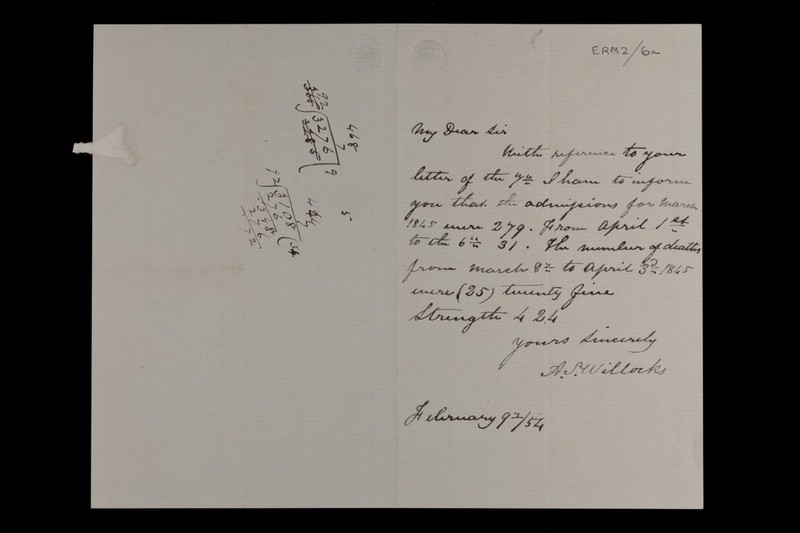 ERM2/6a
My Dear Sir
With reference to your
letter of the 7th I have to inform
you that the admissions for March
1845 were 279. From April 1st
to the 6th 31. The number of deaths
from March 8th to April 3d 1845
were (25) twenty five
Strength 424
Yours Sincerely
A.S. Willocks
February 9th/54
468
7
5
3276
9
92